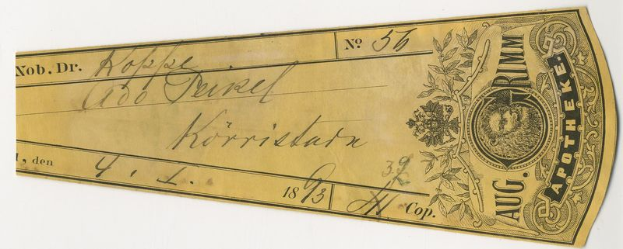 Nob. Dr. Koppe
No 56
Ado Peikel
Körristadn
, den 4. 1. 1893
39
Cop.
AUG. GRIMM
APOTHEKE.